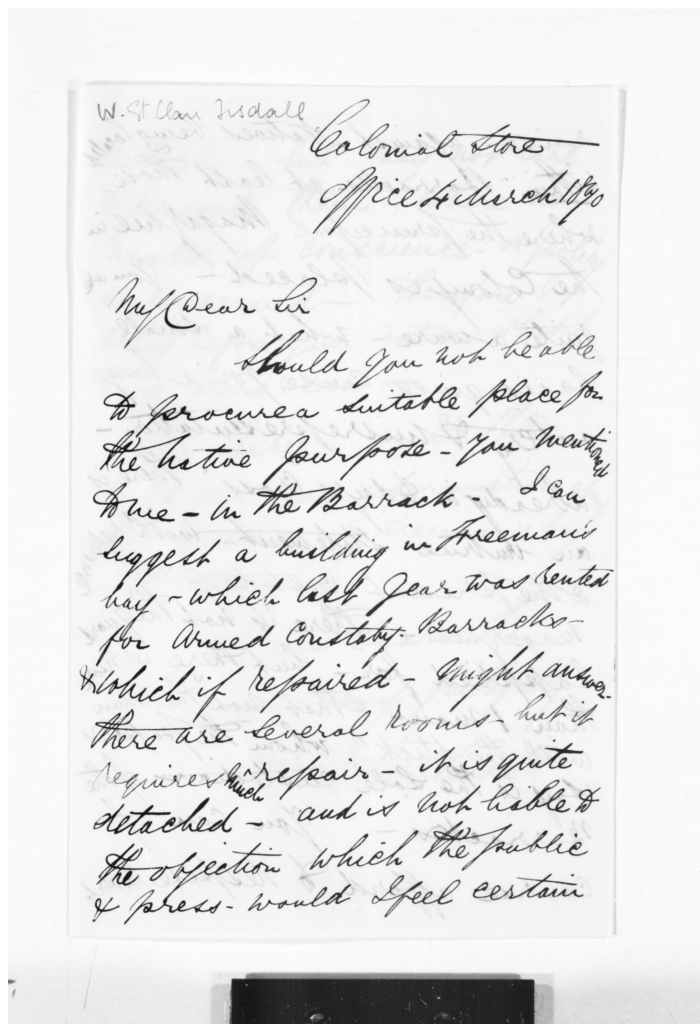 W. St Clair Tisdall
Colonial Store
Office 4 March 1870
My Dear Sir
Should you not be able
to procure a suitable place for
the Native purpose - you mentioned
to me - in the Barrack - I can
suggest a building in Freeman's
bay - which last year was rented
for Armed Constaby. Barracks -
& which if repaired - might answer -
there are several rooms - but it
requires much repair - it is quite
detached - and is not liable to
the objection which the public
& press - would I feel certain